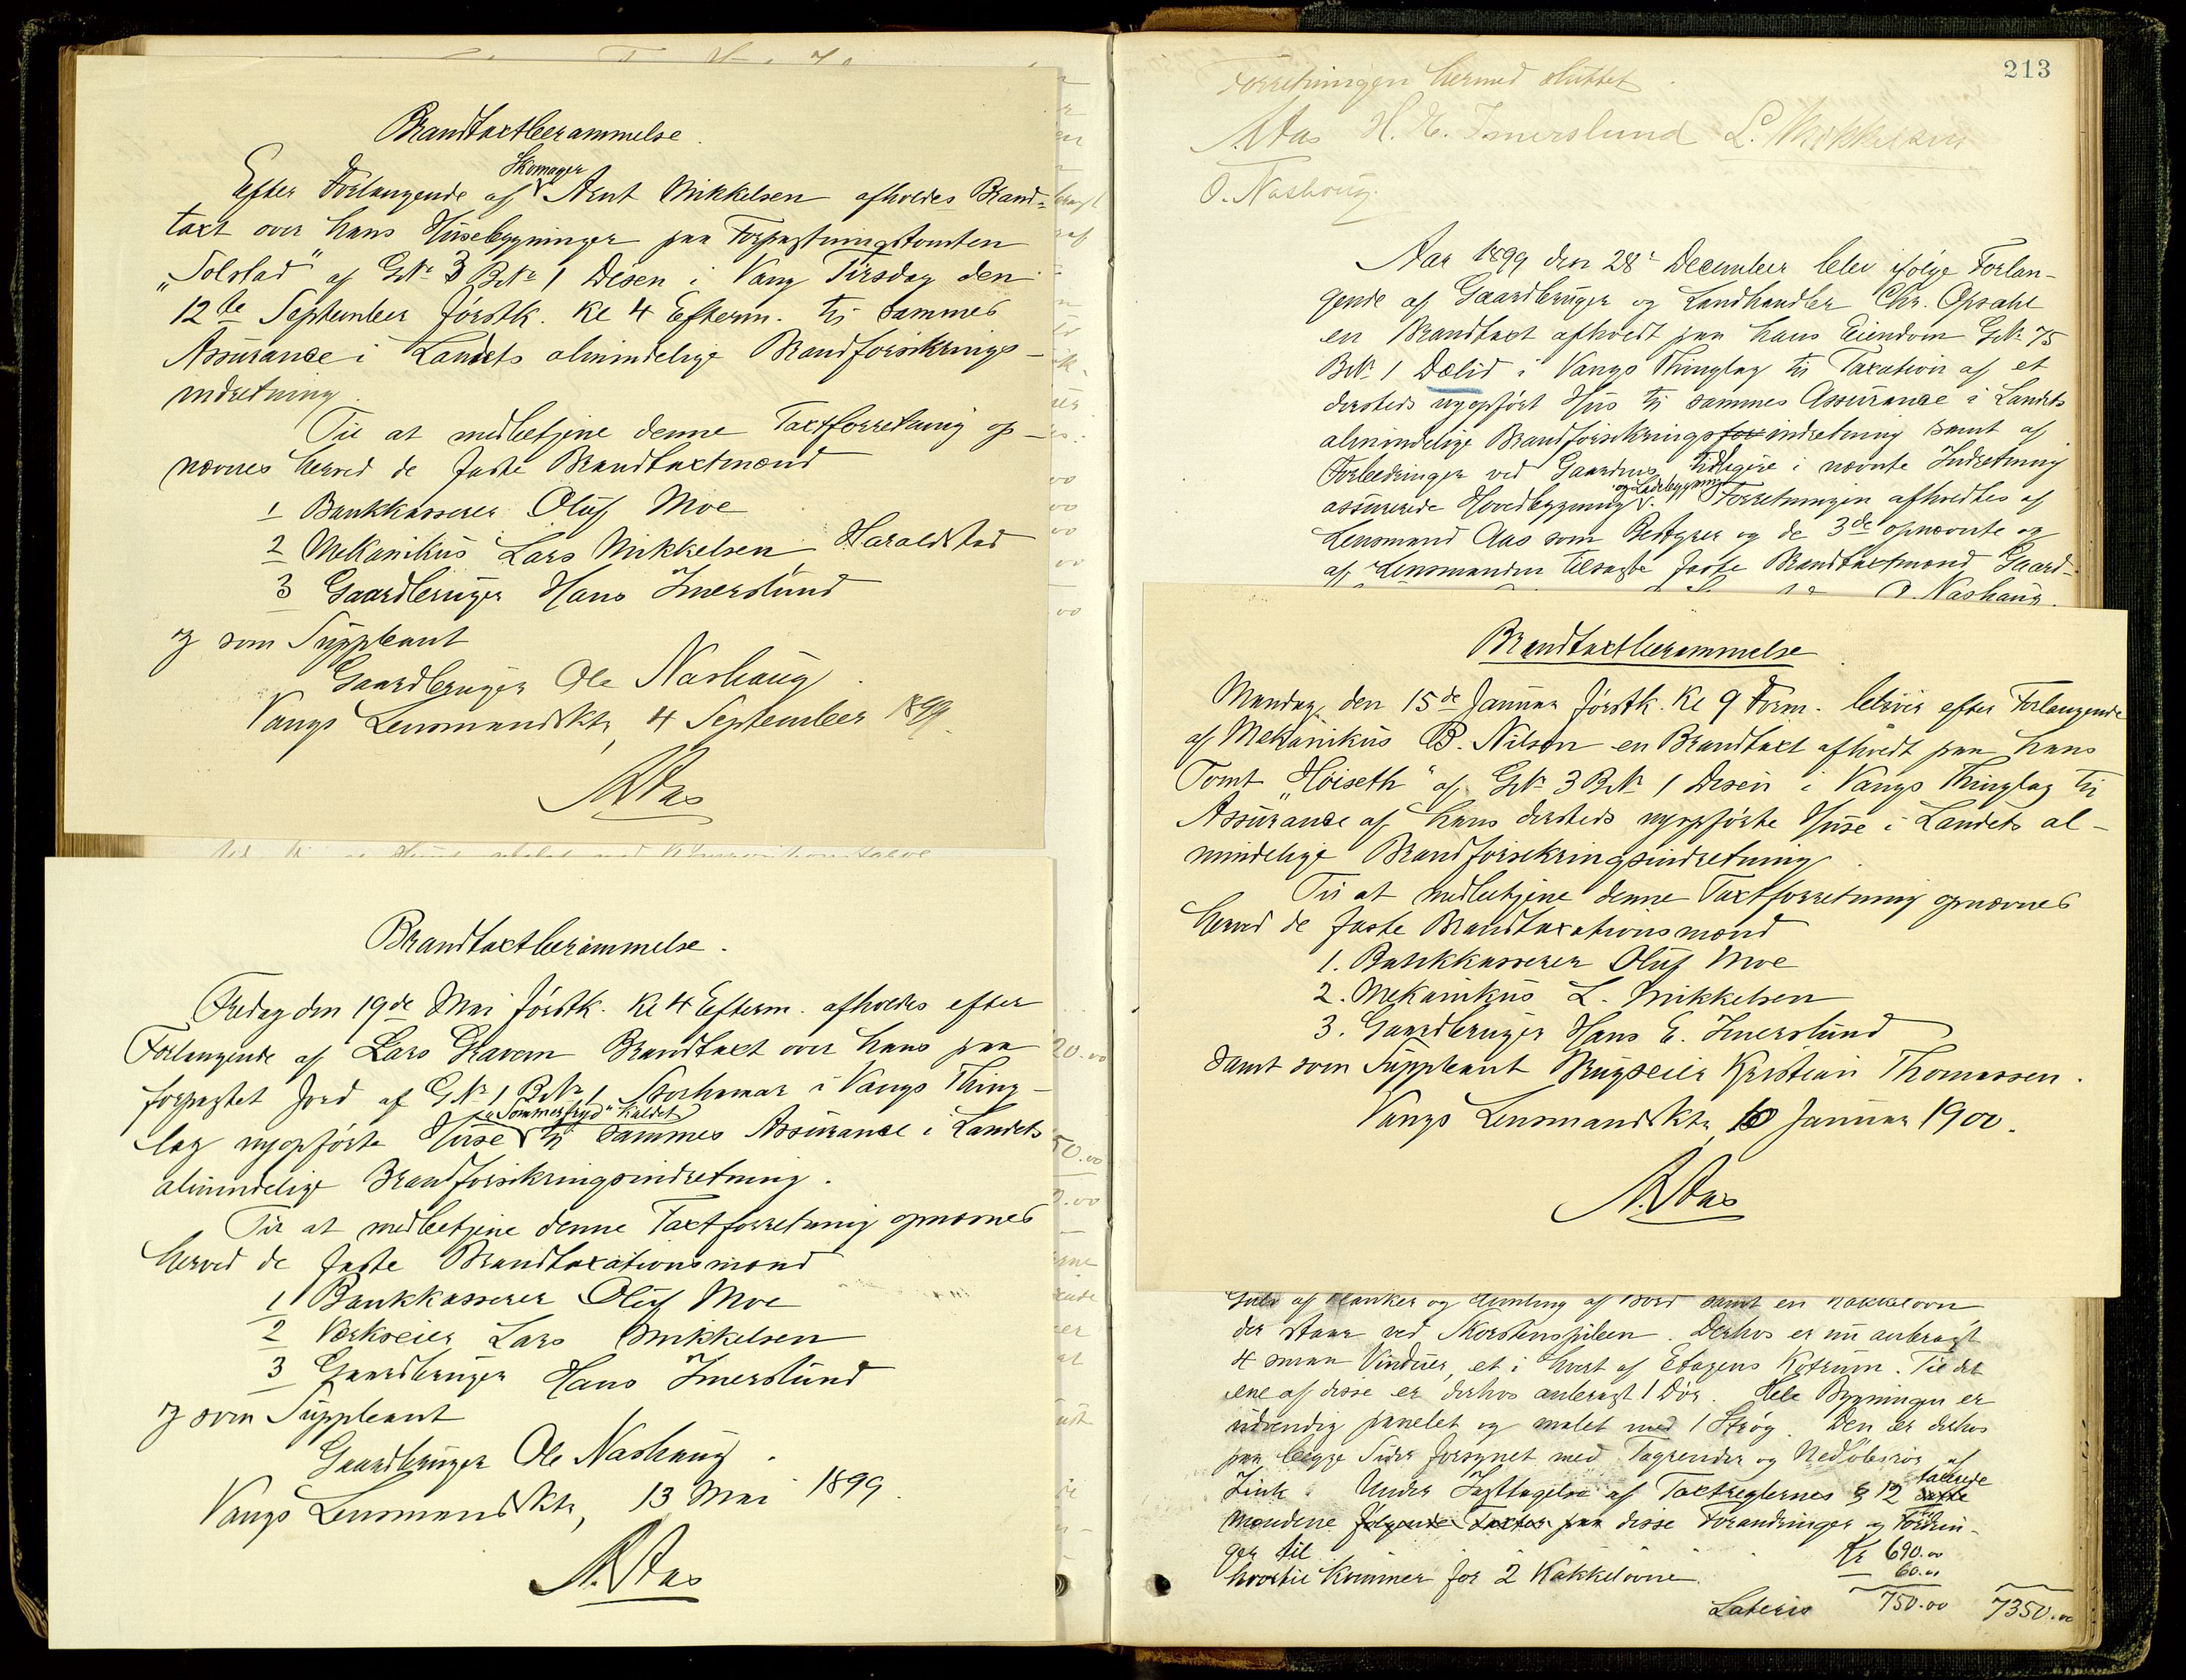 Brandtaxtberammelse.
Skomager
Efter Forlangende af Arnt Mikkelsen afholdes Brand-
taxt over hans Husebygninger paa Forpagtningstomten
„Solstad“ af GNr 3 BNr 1 Disen i Vang Tirsdag den
12te September førstk. Kl 4 Efterm. til sammes
Assurance i Landets almindelige Brandforsikrings-
indretning.
Til at medbetjene denne Taxtforretning op-
nævnes herved de faste Brandtaxtmænd
1 Bankkasserer Oluf Moe
2 Mekanikus Lars Mikkelsen, Haraldstad
3 Gaardbruger Hans Imerslund
og som Suppleant
Gaardbruger Ole Nashaug.
Vangs Lensmandsktr, 4 September 1899.
A. Aas
Brandtaxtberammelse.
Fredag den 19de Mai førstk. Kl 4 Efterm. afholdes efter
Forlangende af Lars Gravem Brandtaxt over hans paa
forpagtet Jord af GNr 1 BNr 1 Storhamar i Vangs Thing-
„Sommerfryd“ kaldet
lag nyopførte Huse til sammes Assurance i Landets
almindelige Brandforsikringsindretning.
Til at medbetjene denne Taxtforretning opnævnes
herved de faste Brandtaxationsmænd
1 Bankkasserer Oluf Moe
2 Værkseier Lars Mikkelsen
3 Gaardbruger Hans Imerslund
og som Suppleant
Gaardbruger Ole Nashaug.
Vangs Lensmandsktr, 13 Mai 1899.
A. Aas
213
Forretningen hermed sluttet.
A Aas H. E. Imerslund L. Mikkelsen
O. Nashoug.
Aar 1899 den 28de December blev ifølge Forlan-
gende af Gaardbruger og Landhandler Chr. Opsahl
en Brandtaxt afholdt paa hans Eiendom GNr 75
BNr 1 Dælid i Vangs Thinglag til Taxation af et
dersteds nyopført Hus til sammes Assurance i Landets
almindelige Brandforsikringsfor indretning samt af
Forbedringer ved Gaardens, tidligere i nævnte Indretning
og Ladebygning
assurerede Hovedbygning. Forretningen afholdtes af
Lensmand Aas som Bestyrer og de 3de opnævnte og
af Lensmanden tilsagte faste Brandtaxtmænd Gaard-
O. Nashaug.
Brandtaxtberammelse
Mandag den 15de Januar førstk. Kl 9 Form. bliver efter Forlangende
af Mekanikus B. Nilson en Brandtaxt afholdt paa hans
Tomt „Høiseth“ af GNr 3 BNr 1 Disen i Vangs Thinglag til
Assurance af hans dersteds nyopførte Huse i Landets al-
mindelige Brandforsikringsindretning.
Til at medbetjene denne Taxtforretning opnævnes
herved de faste Brandtaxationsmænd
1. Bankkasserer Oluf Moe
2. Mekanikus L. Mikkelsen
3. Gaardbruger Hans E. Imerslund
samt som Suppleant Brugseier Kristian Thomassen.
Vangs Lensmandsktr, 10 Januar 1900.
A. Aas
Gulv af Planker og Himling af Bord samt en Kakkelovn
der staar ved Skorstenspiben. Derhos er nu anbragt
4 smaa Vinduer, et i hvert af Etagens Kotrum. Til det
ene af disse er derhos anbragt 1 Dør. Hele Bygningen er
udvendig panelet og malet med 1 Strøg. Den er derhos
paa begge Sider forsynet med Tagrender og Nedløbsrør af
Zink. Under Iagttagelse af Taxtreglernes § 12 taxerede
Mændene følgende Taxter paa disse Forandringer og Fordrin-
ger til Kr 690.00
hvortil kommer for 2 Kakkelovne. — 60.00
Lateris 750.00 7350.00